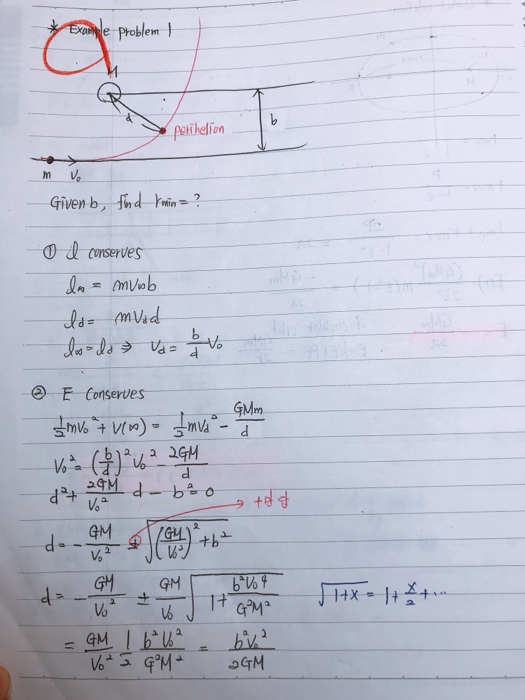 * Example Problem 1
M
d
b
perihelion
m V₀
Given b, find rmin = ?
① l conserves
l∞ = mV∞b
ld = mVdd
l∞ = ld ⇒ Vd = b/d V₀
② E Conserves
1/2 mV₀² + V(∞) = 1/2 mVd² - GMm/d
V₀² = (b/d)² V₀² - 2GM/d
d² + 2GM/V₀² d - b² = 0
d = - GM/V₀² ± √((GM/V₀²)² + b²)
d = - GM/V₀² ± GM/V₀ √(1 + b²V₀⁴/G²M²) √(1+x) = 1 + x/2 + ...
= GM/V₀² 1/2 b²V₀²/G²M² = b²V₀²/2GM